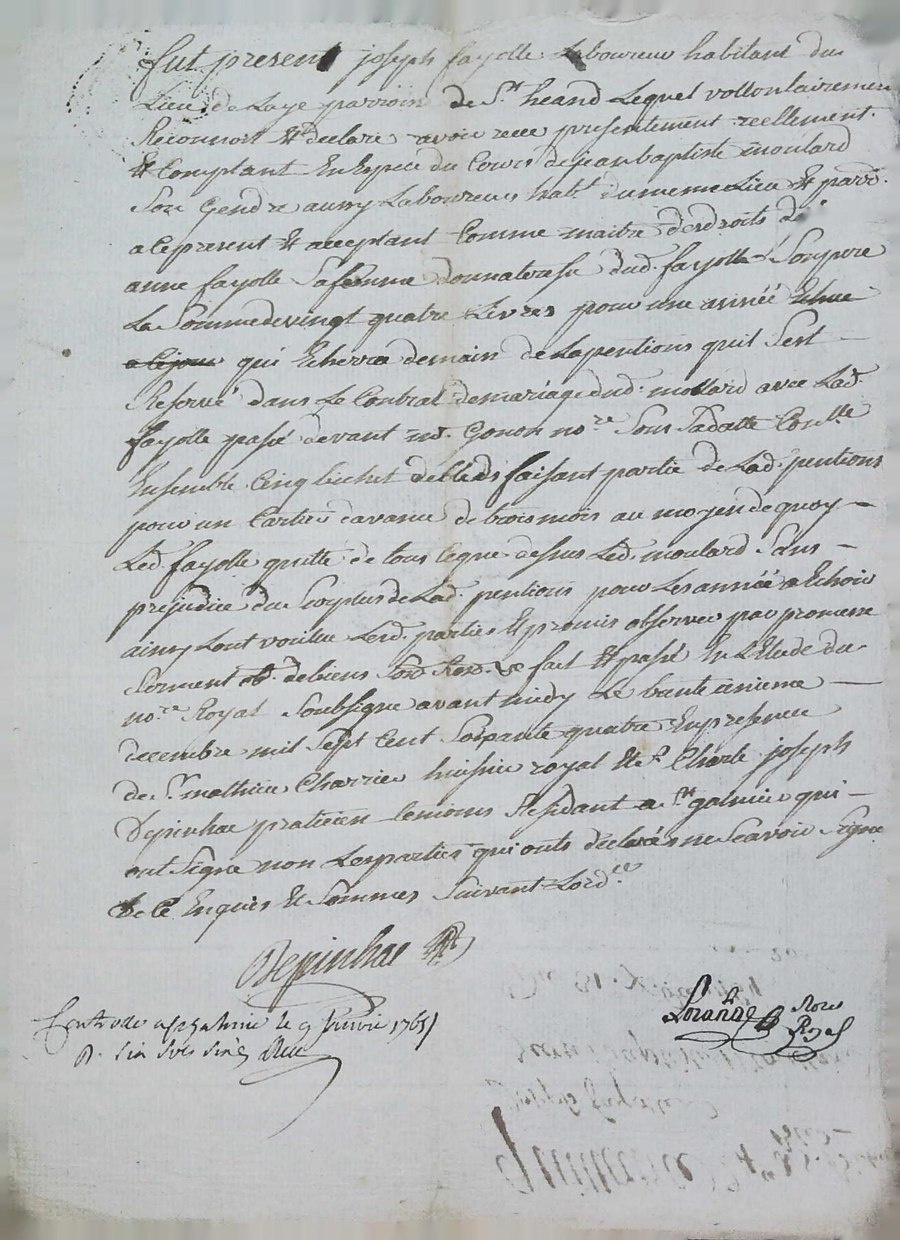 fut present joseph fayolle Laboureur habitant du
Lieu de Laye parroisse de St heand Lequel vollontairement
Reconnoit & declare avoir receu presentement reellement
& Comptant En Espece du Cours de jean baptiste moulard
Son Gendre aussy Laboureur habt. du meme Lieu & parr.
a ce present & acceptant Comme maitre des droits d'
anne fayolle Sa femme donnateresse dud. fayolle Son pere
La Somme de vingt quatre Livres pour une année Echue
a ce jour qui Echerra demain de La pentions quil Sest
Reservé dans Le Contrat de mariage dud. mollard avec Lad.
fayolle passé devant me. Gonon nore Sous Sa datte Conlle
Ensemble Cinq bichet de bleds faisant partie de Lad. pentions
pour un Cartier d'avance de trois mois au moyen de quoy
Led. fayolle quitte de tous ce que dessus Led. moulard Sans
prejudice du Surplus de Lad. pentions pour Les année a Echoir
ainsy Lont voullu Lesd. parties & promis observer par promesse
Serment ob. de biens Sou Ren. & fait & passé En L'Etude du
nore Royal Soubsigné avant midy Le trante unieme
decembre mil Sept Cent Soixante quatre En presence
de Sr mathieu Charrier huissier royal & Sr Charle joseph
Depinhac praticien temoins Residant a St galmier qui
ont Signé non Les parties qui onts déclarés ne Scavoir Signer
de ce Enquis & Sommes Suivant Lordce
Depinhac
Lorange Nore
Royal
Controllé a St galmie le 9 janvier 1765
R. six sols six d.